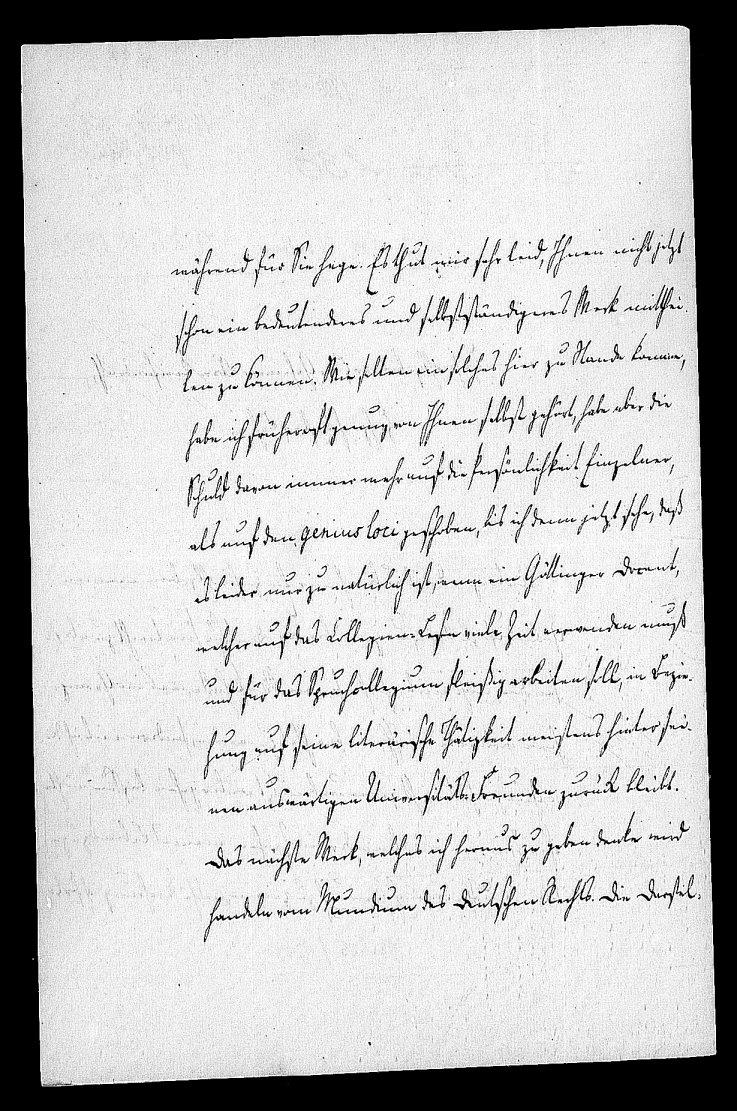 während für Sie hege. Es thut mir sehr leid, Ihnen nicht jetzt
schon ein bedeutenderes und selbstständigeres Werk mitthei-
len zu können. Wie selten ein solches hier zu Stande komme,
habe ich früher oft genug von Ihnen selbst gehört, habe aber die
Schuld davon immer mehr auf die Persönlichkeit Einzelner,
als auf den genius loci geschoben, bis ich denn jetzt sehe, daß
es leider nur zu natürlich ist, wenn ein Göttinger Docent,
welcher auf das Collegien-Lesen viele Zeit verwenden muß
und für das Spruchcollegium fleißig arbeiten soll, in Bezie-
hung auf seine literärische Thätigkeit meistens hinter sei-
nen auswärtigen Universitäts-Freunden zurück bleibt.
Das nächste Werk, welches ich heraus zu geben denke wird
handeln vom Mundium des deutschen Rechts. Die Darstel-